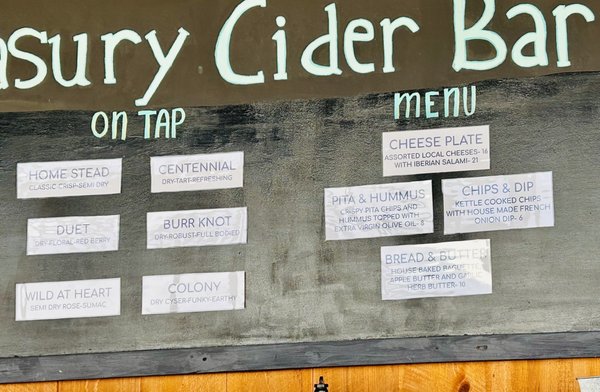 asury Cider Bar
ON TAP
HOME STEAD
CLASSIC CRISP-SEMI DRY
CENTENNIAL
DRY-TART-REFRESHING
DUET
DRY-FLORAL-RED BERRY
BURR KNOT
DRY-ROBUST-FULL BODIED
WILD AT HEART
SEMI DRY ROSE-SUMAC
COLONY
DRY CYSER-FUNKY-EARTHY
MENU
CHEESE PLATE
ASSORTED LOCAL CHEESES- 16
WITH IBERIAN SALAMI- 21
PITA & HUMMUS
CRISPY PITA CHIPS AND
HUMMUS TOPPED WITH
EXTRA VIRGIN OLIVE OIL- 8
CHIPS & DIP
KETTLE COOKED CHIPS
WITH HOUSE MADE FRENCH
ONION DIP- 6
BREAD & BUTTER
HOUSE BAKED
APPLE BUTTER AND
HERB BUTTER- 10